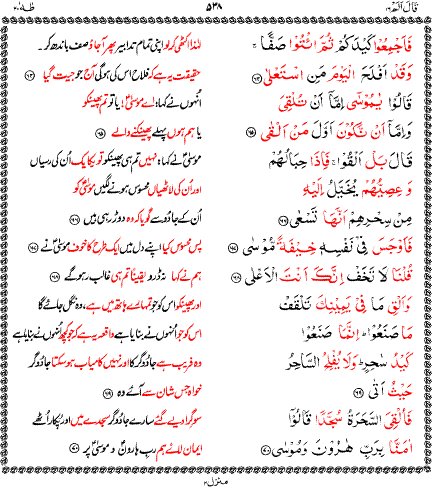 قَالَ اَلَمْ ۱۶
۵۳۸
طٰهٰ ۲۰
فَاَجْمِعُوْا كَيْدَكُمْ ثُمَّ ائْتُوْا صَفًّا ۚ
وَقَدْ اَفْلَحَ الْيَوْمَ مَنِ اسْتَعْلٰى ۶۴
قَالُوْا يٰمُوْسٰٓى اِمَّآ اَنْ تُلْقِيَ
وَاِمَّآ اَنْ نَّكُوْنَ اَوَّلَ مَنْ اَلْقٰى ۶۵
قَالَ بَلْ اَلْقُوْا ۚ فَاِذَا حِبَالُهُمْ
وَعِصِيُّهُمْ يُخَيَّلُ اِلَيْهِ
مِنْ سِحْرِهِمْ اَنَّهَا تَسْعٰى ۶۶
فَاَوْجَسَ فِيْ نَفْسِهٖ خِيْفَةً مُّوْسٰى ۶۷
قُلْنَا لَا تَخَفْ اِنَّكَ اَنْتَ الْاَعْلٰى ۶۸
وَاَلْقِ مَا فِيْ يَمِيْنِكَ تَلْقَفْ
مَا صَنَعُوْا ؕ اِنَّمَا صَنَعُوْا
كَيْدُ سٰحِرٍ ؕ وَلَا يُفْلِحُ السَّاحِرُ
حَيْثُ اَتٰى ۶۹
فَاُلْقِيَ السَّحَرَةُ سُجَّدًا قَالُوْٓا
اٰمَنَّا بِرَبِّ هٰرُوْنَ وَمُوْسٰى ۷۰
لہٰذا اکٹھی کرلو اپنی تمام تدابیر پھر آجاؤ صف باندھ کر۔
حقیقت یہ ہے کہ فلاح اس کی ہوگی آج جو جیت گیا ۶۴
اُنہوں نے کہا: اے موسیٰ! یا تو تم پھینکو
یا ہم ہوں پہلے پھینکنے والے ۶۵
موسیٰ نے کہا: نہیں تم ہی پھینکو تو یکایک اُن کی رسیاں
اور اُن کی لاٹھیاں محسوس ہونے لگیں موسیٰ کو
اُن کے جادو سے گویا کہ وہ دوڑ رہی ہیں ۶۶
پس محسوس کیا اپنے دل میں ایک طرح کا خوف موسیٰ نے ۶۷
ہم نے کہا نہ ڈرو یقیناً تم ہی غالب رہو گے ۶۸
اور پھینکو اس کو جو تمہارے ہاتھ میں ہے، وہ نگل جائے گا
اس کو جو اُنہوں نے بنایا ہے واقعہ یہ ہے کہ جو کچھ اُنہوں نے بنایا ہے
وہ فریب ہے جادوگر کا اور نہیں کامیاب ہوسکتا جادوگر
خواہ جس شان سے آئے وہ ۶۹
سو گرا دیے گئے سارے جادوگر سجدے میں اور پکار اُٹھے
ایمان لائے ہم ربِ ہارون و موسیٰ پر ۷۰
منزل ۴